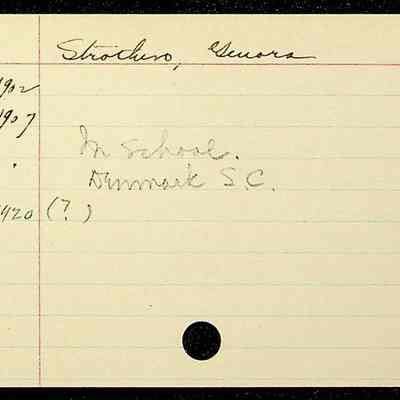 Strothers, Genora
1902
1907
In School.
Denmark S.C.
1920 (?)